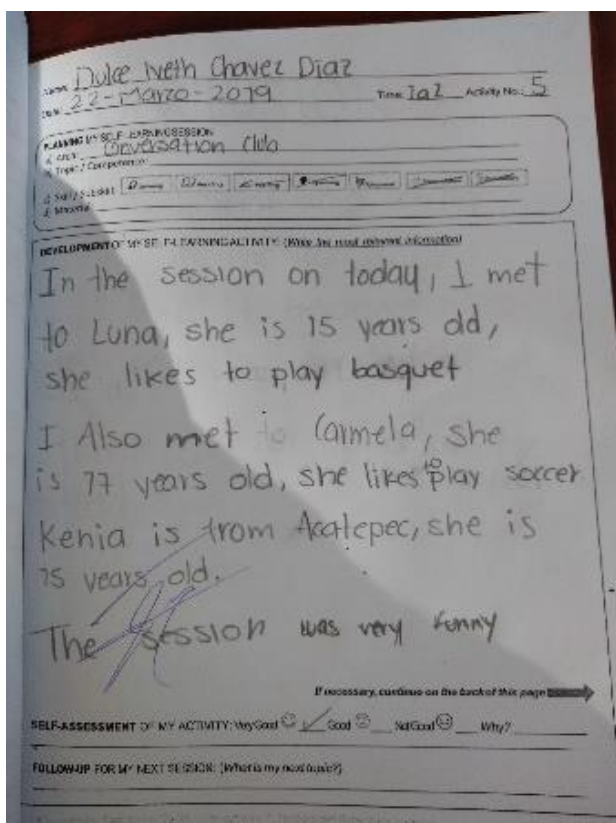 Name: Dulce Iveth Chavez Diaz
Date: 22-Marzo-2019 Time: 1a2 Activity No.: 5
PLANNING MY SELF-LEARNING SESSION
Area: Conversation Club
Topic / Competence:
Skill / Subskill:
Material:
DEVELOPMENT OF MY SELF-LEARNING ACTIVITY: (Write the most relevant information)
In the session on today, I met
to Luna, she is 15 years old,
she likes to play basquet
I Also met to Carmela, she
is 17 years old, she likes to play soccer
Kenia is from Acatepec, she is
15 years old.
The session was very funny
If necessary, continue on the back of this page
SELF-ASSESSMENT OF MY ACTIVITY: Very Good Good Not Good Why?
FOLLOW-UP FOR MY NEXT SESSION: (What is my next topic?)